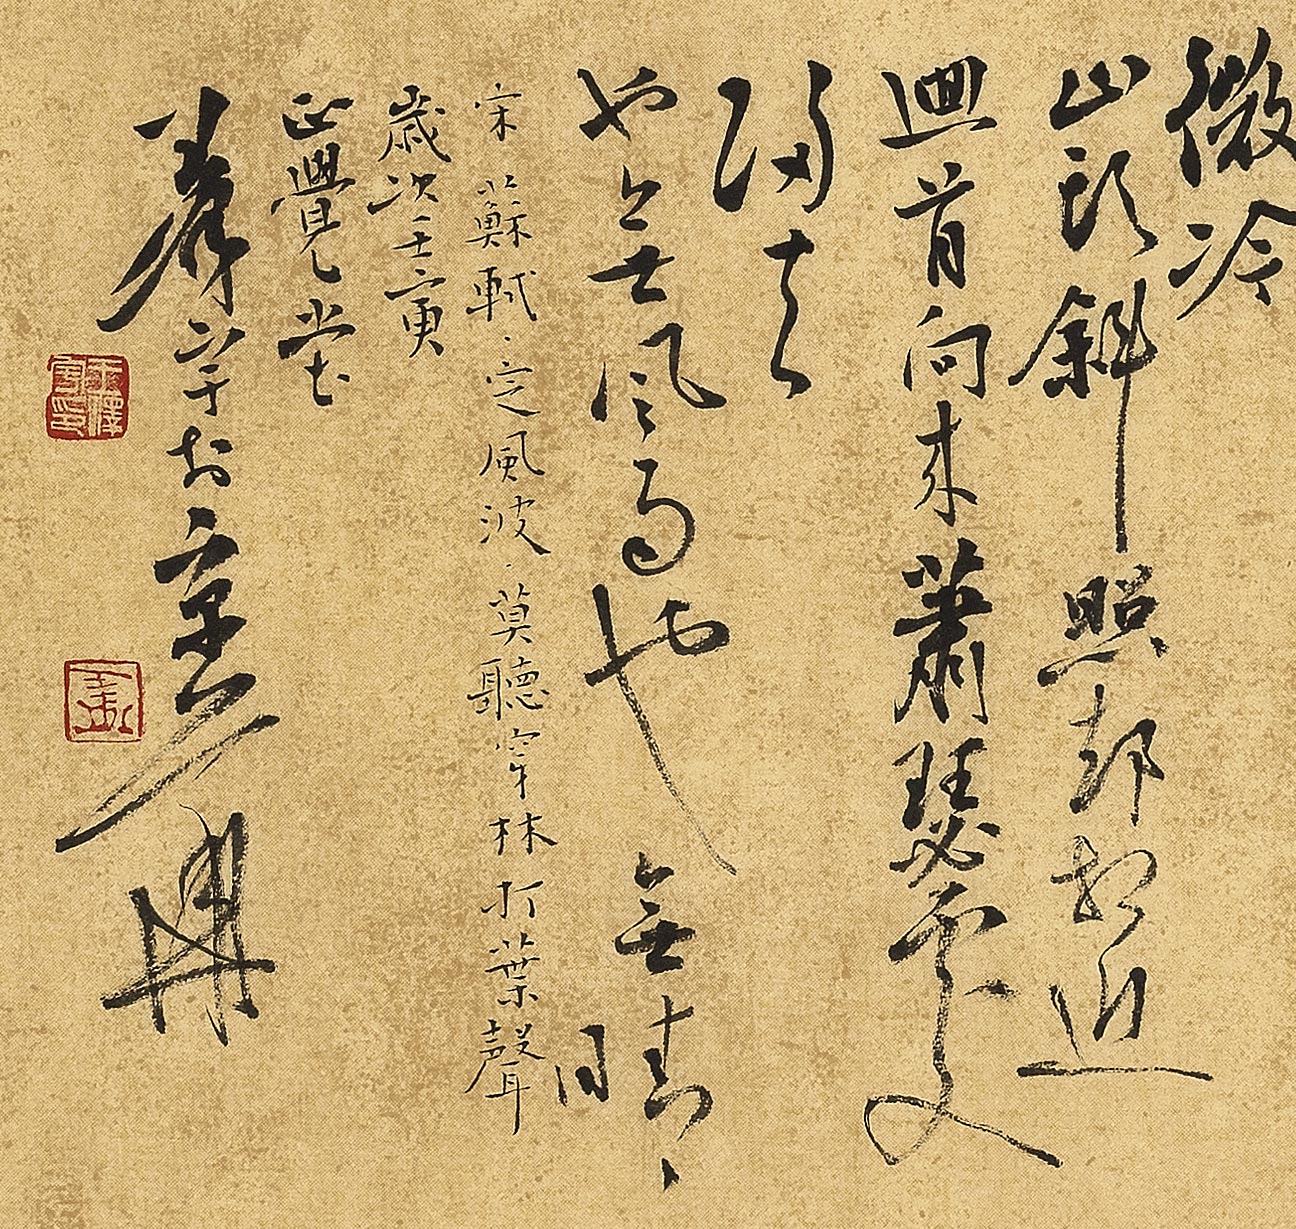 微冷
山頭斜照却相迎
迴首向來蕭瑟處
歸去
也無風雨也無晴
宋蘇軾定風波莫聽穿林打葉聲
歲次壬寅
正覺堂
於京